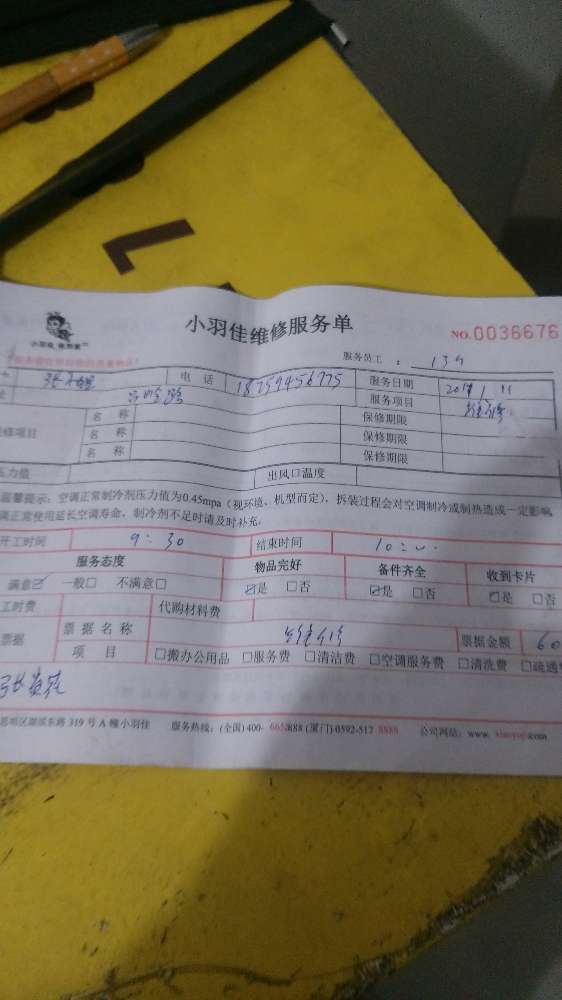 L
小羽佳维修服务单
NO.0036676
小羽佳
服务员工：
电话 服务日期
吕岭路 服务项目 维修
修项目 名称 保修期限
名称 保修期限
名称 保修期限
压力值 出风口温度
温馨提示：空调正常制冷剂压力值为0.45mpa（视环境、机型而定），拆装过程会对空调制冷或制热造成一定影响
满正常使用延长空调寿命，制冷剂不足时请及时补充。
开工时间 9:30 结束时间 10:
服务态度 物品完好 备件齐全 收到卡片
满意☑ 一般□ 不满意□ ☑是 □否 ☑是 □否 ☑是 □否
工时费 代购材料费
票据 票据名称 维修 票据金额 60
项目 □搬办公用品 □服务费 □清洁费 □空调服务费 □清洗费 □疏通
思明区湖滨东路319号A幢小羽佳 服务热线：(全国)400- (厦门)0592-517 8888 公司网站：www.xiaoyujia.com